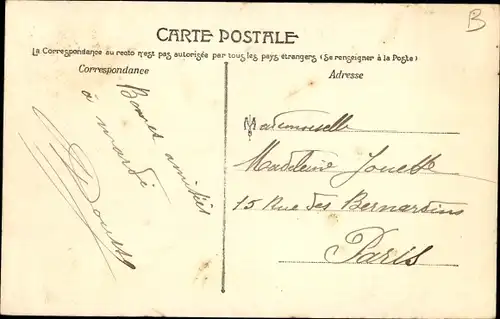 B
CARTE POSTALE
La Correspondance au recto n'est pas autorisée par tous les pays étrangers (Se renseigner à la Poste)
Correspondance
Adresse
Bonnes amitiés
à mardi
Mademoiselle
Madeleine
15 Rue des Bernardins
Paris